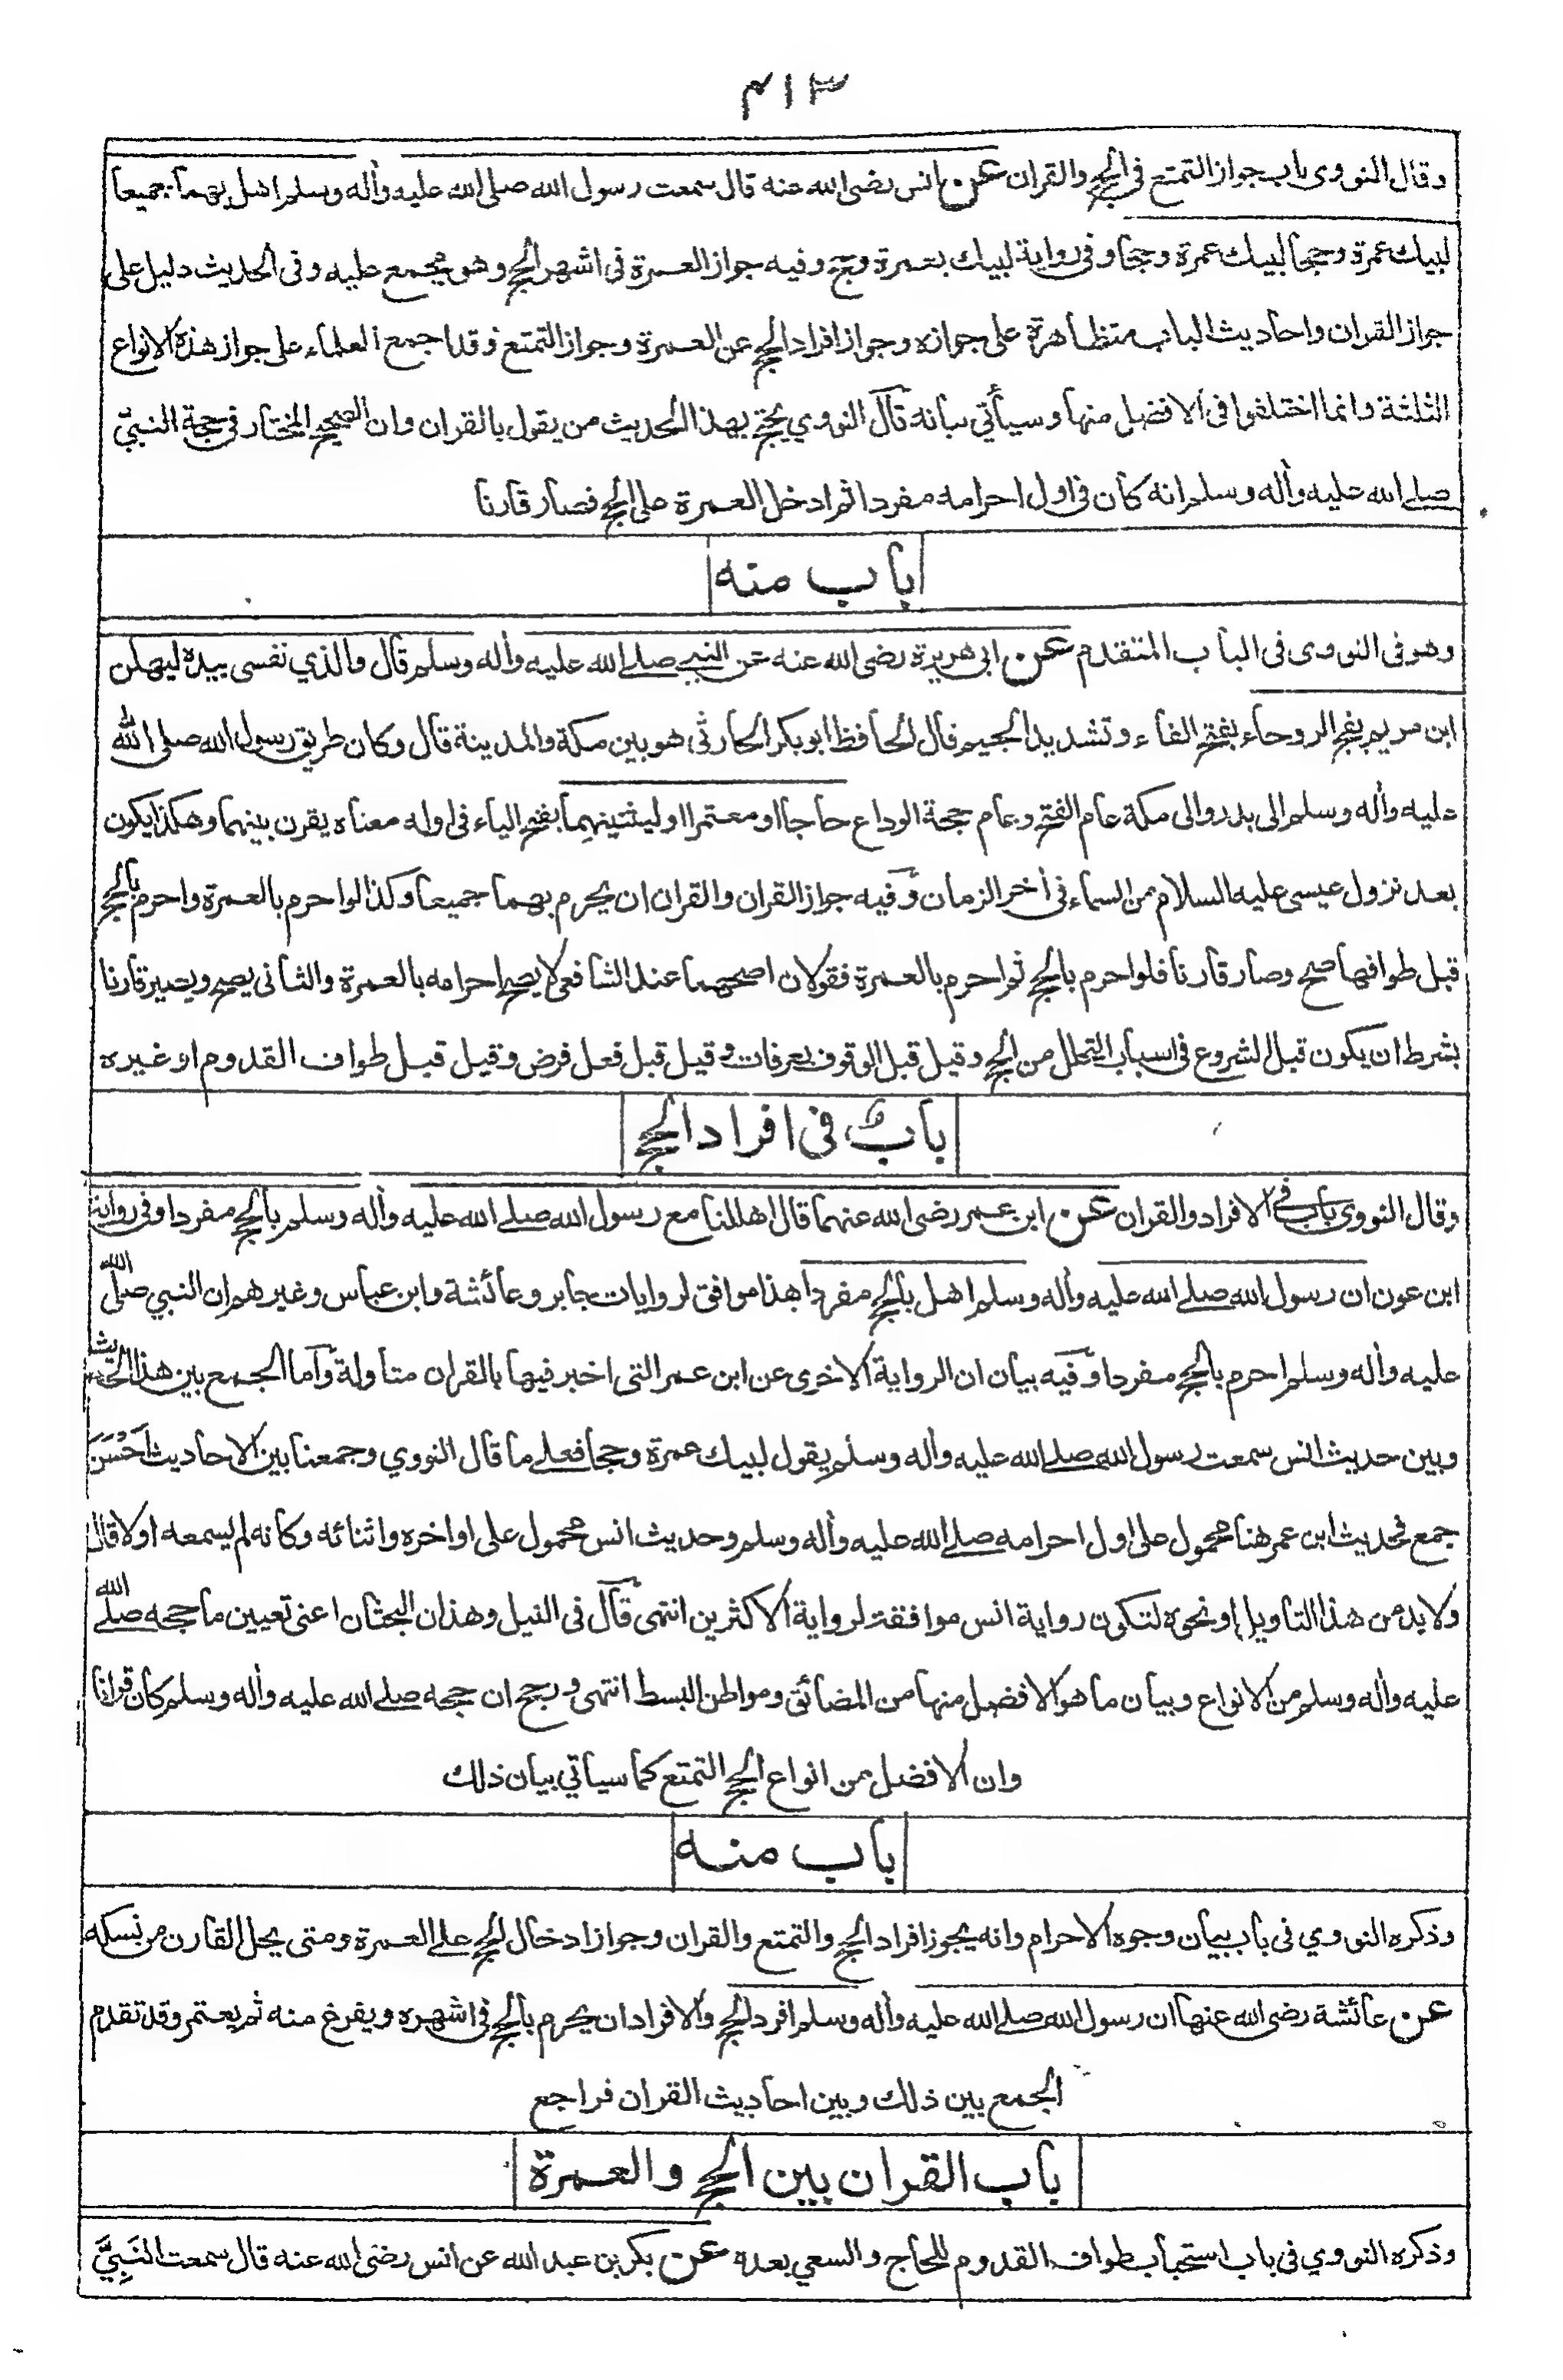 ٤١٣
وقال النووى باب جواز التمتع فى الحج والقران عن انس رضى الله عنه قال سمعت رسول الله صلى الله عليه وأله وسلم اهل بهما جميعا
لبيك عمرة وحجا لبيك عمرة وحجا وفى رواية لبيك بعمرة وحج وفيه جواز العمرة فى اشهر الحج وهو مجمع عليه وفى الحديث دليل على
جواز القران واحاديث الباب متظاهرة على جوازه وجواز افراد الحج عن العمرة وجواز التمتع وقد اجمع العلماء على جواز هذه الانواع
الثلثة وانما اختلفوا فى الافضل منها وسيأتي بيانه قال النووي يحتج بهذا الحديث من يقول بالقران وان الصحيح المختار فى حجة النبيّ
صلے الله عليه وأله وسلم انه كان فى اول احرامه مفردا ثم ادخل العمرة على الحج فصار قارنا
باب منه
وهو فى النووى فى الباب المتقدم عن ابى هريرة رضى الله عنه عن النبي صلے الله عليه وأله وسلم قال والذي نفسى بيده ليهلن
ابن مريم بفج الروحاء بفتح الفاء وتشديد الجيم قال الحافظ ابو بكر الحارثى هو بين مكة والمدينة قال وكان طريق رسول الله صلى الله
عليه وأله وسلم الى بدر والى مكة عام الفتح وعام حجة الوداع حاجا او معتمرا او ليثنينهما بفتح الياء فى اوله معناه يقرن بينهما وهكذا يكون
بعد نزول عيسى عليه السلام من السماء فى أخر الزمان وفيه جواز القران والقران ان يحرم بهما جميعا وكذا لو احرم بالعمرة واحرم بالحج
قبل طوافها صح وصار قارنا فلو احرم بالحج ثم احرم بالعمرة فقولان اصحهما عند الشافعى لا يصح احرامه بالعمرة والثانى يصح ويصير قارنا
بشرط ان يكون قبل الشروع فى اسباب التحلل من الحج وقيل قبل الوقوف بعرفات وقيل قبل فعل فرض وقيل قبل طواف القدوم او غيره
باب فى افراد الحج
وقال النووى باب فى الافراد والقران عن ابن عمر رضى الله عنهما قال اهللنا مع رسول الله صلے الله عليه وأله وسلم بالحج مفردا وفى رواية
ابن عون ان رسول الله صلے الله عليه وأله وسلم اهل بالحج مفردا هذا موافق لروايات جابر وعائشة وابن عباس وغيرهم ان النبي صلى الله
عليه وأله وسلم احرم بالحج مفردا وفيه بيان ان الرواية الاخرى عن ابن عمر التى اخبر فيها بالقران متأولة وأما الجمع بين هذا الحديث
وبين حديث انس سمعت رسول الله صلے الله عليه وأله وسلم يقول لبيك عمرة وحجا فعلے ما قال النووي وجمعنا بين الاحاديث اَحْسَنَ
جمع فحديث ابن عمر هنا محمول على اول احرامه صلے الله عليه وأله وسلم وحديث انس محمول على اواخره واثنائه وكانه لم يسمعه اولا قال
ولا بد من هذا التاويل او نحوه لتكون رواية انس موافقة لرواية الاكثرين انتهى قال فى النيل وهذان البحثان اعنى تعيين ما حجه صلے الله
عليه وأله وسلم من الانواع وبيان ما هو الافضل منها من المضائق ومواطن البسط انتهى ورجح ان حجه صلے الله عليه وأله وسلم كان قرانا
وان الافضل من انواع الحج التمتع كما سيأتي بيان ذلك
باب منه
وذكره النووي فى باب بيان وجوه الاحرام وانه يجوز افراد الحج والتمتع والقران وجواز ادخال الحج علے العمرة ومتى يحل القارن من نسكه
عن عائشة رضى الله عنها ان رسول الله صلے الله عليه وأله وسلم افرد الحج والافراد ان يحرم بالحج فى اشهره ويفرغ منه ثم يعتمر وقد تقدم
الجمع بين ذلك وبين احاديث القران فراجع
باب القران بين الحج والعمرة
وذكره النووي فى باب استحباب طواف القدوم للحاج والسعي بعده عن بكر بن عبد الله عن انس رضى الله عنه قال سمعت النَبِيَّ